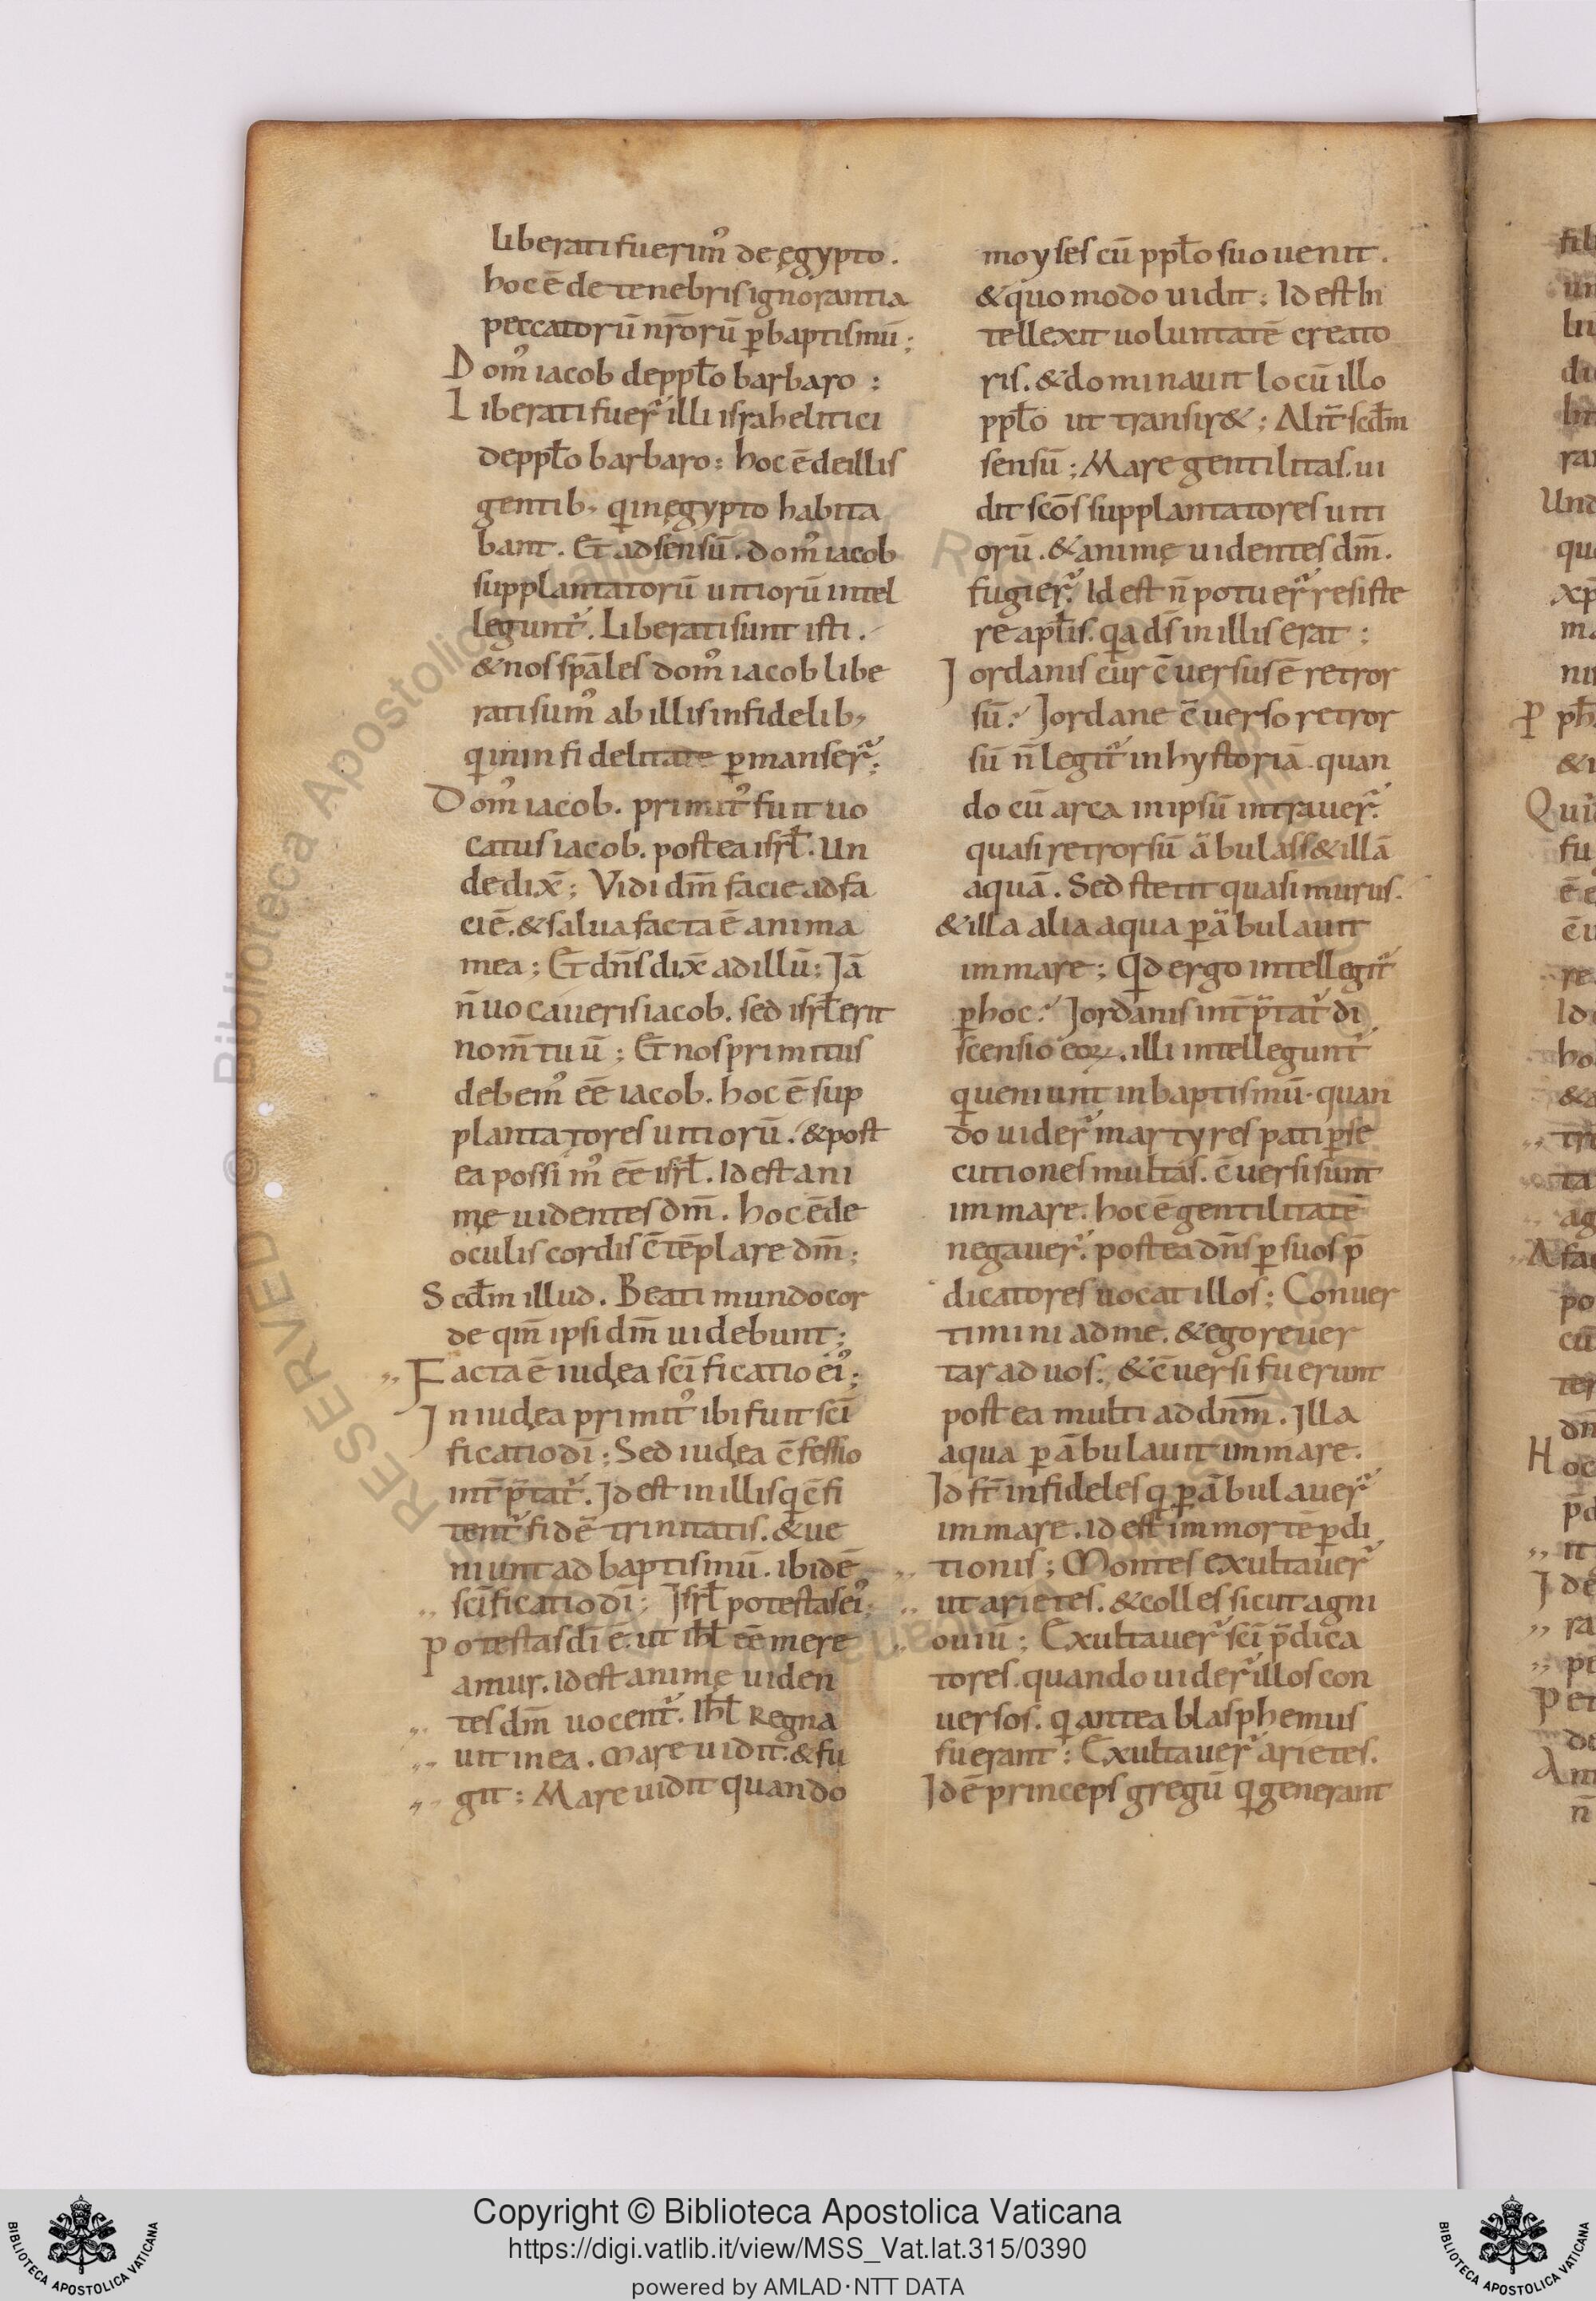 liberati fuerim᾽ de ęgypto.
hoc ē de tenebris ignorantia
peccatorū nr̄orū ꝑ baptismū;
Dom᾽ iacob de ppl̄o barbaro:
Liberati fuer̃ illi israhelitici
de ppl̄o barbaro: hoc ē de illis
gentib; qi in ęgypto habita
bant. Et ad sensū. dom᾽ iacob
supplantatorū uitiorū intel
legunt᷑. Liberati sunt isti.
& nos spāles dom᾽ iacob libe
rati sum᾽ ab illis infidelib;
qi in infidelitate ꝑmanser̃;
Dom᾽ iacob. primit᾽ fuit uo
catus iacob. postea isrl̄. Un
de dix̄; Vidi dm̄ facie ad fa
ciē. & salua facta ē anima
mea; Et dn̄s dix̄ ad illū; Jā
n̄ uocaueris iacob. sed isrl̄ erit
nom̄ tuū; Et nos primitus
debem᾽ ēē iacob. hoc ē sup
plantatores uitiorū. & post
ea possim᾽ ēē isrl̄. Id est ani
mę uidentes dm̄. hoc ē de
oculis cordis c̄tēplare dm̄;
Scd̄m illud. Beati mundo cor
de qm̄ ipsi dm̄ uidebunt;
,, Facta ē iudęa sci̅ficatio ei᾽;
In iudęa primit᾽ ibi fuit sci̅
ficatio di̅; Sed iudęa c̄fessio
int̄p̄tat᷑. Id est in illis qi c̄fi
tent᷑ fidē trinitatis. & ue
niunt ad baptismū. ibidē
,, sci̅ficatio di̅; Isrl̄ potestas ei᾽;
Potestas di̅ ē. ut ihl̄ ēē mere
amur. Id est animę uiden
,, tes dm̄ uocent᷑. Ihl̄ Regna
,, uit in ea. Mare uidit. & fu
,, git; Mare uidit quando
moyses cū ppl̄o suo uenit.
& quomodo uidit; Id est In
tellexit uoluntatē creato
ris. & dominauit locū illo
ppl̄o ut transir&; Alit̄ scd̄m
sensū; Mare gentilitas. ui
dit sc̄os supplantatores uiti
orū. & animę uidentes dm̄.
fugier̃. Id est n̄ potuer̃ resiste
re apl̄is. qa ds̄ in illis erat:
Jordanis cur c̄uersus ē retror
sū? Jordane c̄uerso retror
sū n̄ legit᷑ in hystoriā. quan
do cū arca in ipsū intrauer̃.
quasi retrorsū ābulass& illā
aquā. Sed stetit quasi murus.
& illa alia aqua ꝑābulauit
im mare; Qid ergo intellegit᷑
ꝑ hoc? Jordanis int̄p̄tat᷑ di
scensio eoꝝ. illi intellegunt᷑
qi ueniunt in baptismū. quan
do uider̃ martyres pati ꝑse
cutiones multas. c̄uersi sunt
im mare. hoc ē gentilitatē
negauer̃. postea dn̄s ꝑ suos p̄
dicatores uocat illos; Conuer
timini ad me. & ego reuer
tar ad uos; & c̄uersi fuerunt
postea multi ad dnm̄. Illa
aqua ꝑābulauit im mare.
Id st̄ infideles qi ꝑābulauer̃
im mare. Id est im mortē ꝑdi
,, tionis; Montes exultauer̃
,, ut arietes. & colles sicut agni
,, ouiū; Exultauer̃ sci̅ p̄dica
tores. quando uider̃ illos con
uersos. qi antea blasphemus
fuerant; Exultauer̃ arietes.
Id ē princeps gregū qi generant
Copyright © Biblioteca Apostolica Vaticana
https://digi.vatlib.it/view/MSS_Vat.lat.315/0390
powered by AMLAD·NTT DATA
BIBLIOTECA APOSTOLICA VATICANA
BIBLIOTECA APOSTOLICA VATICANA